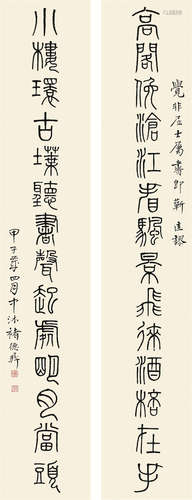 高閣俛滄江看颿景飛來酒桮在手
覺非居士屬書即靳正謬
小樓環古堞聽書聲起處明月當頭
甲子年四月中沐褚德彝